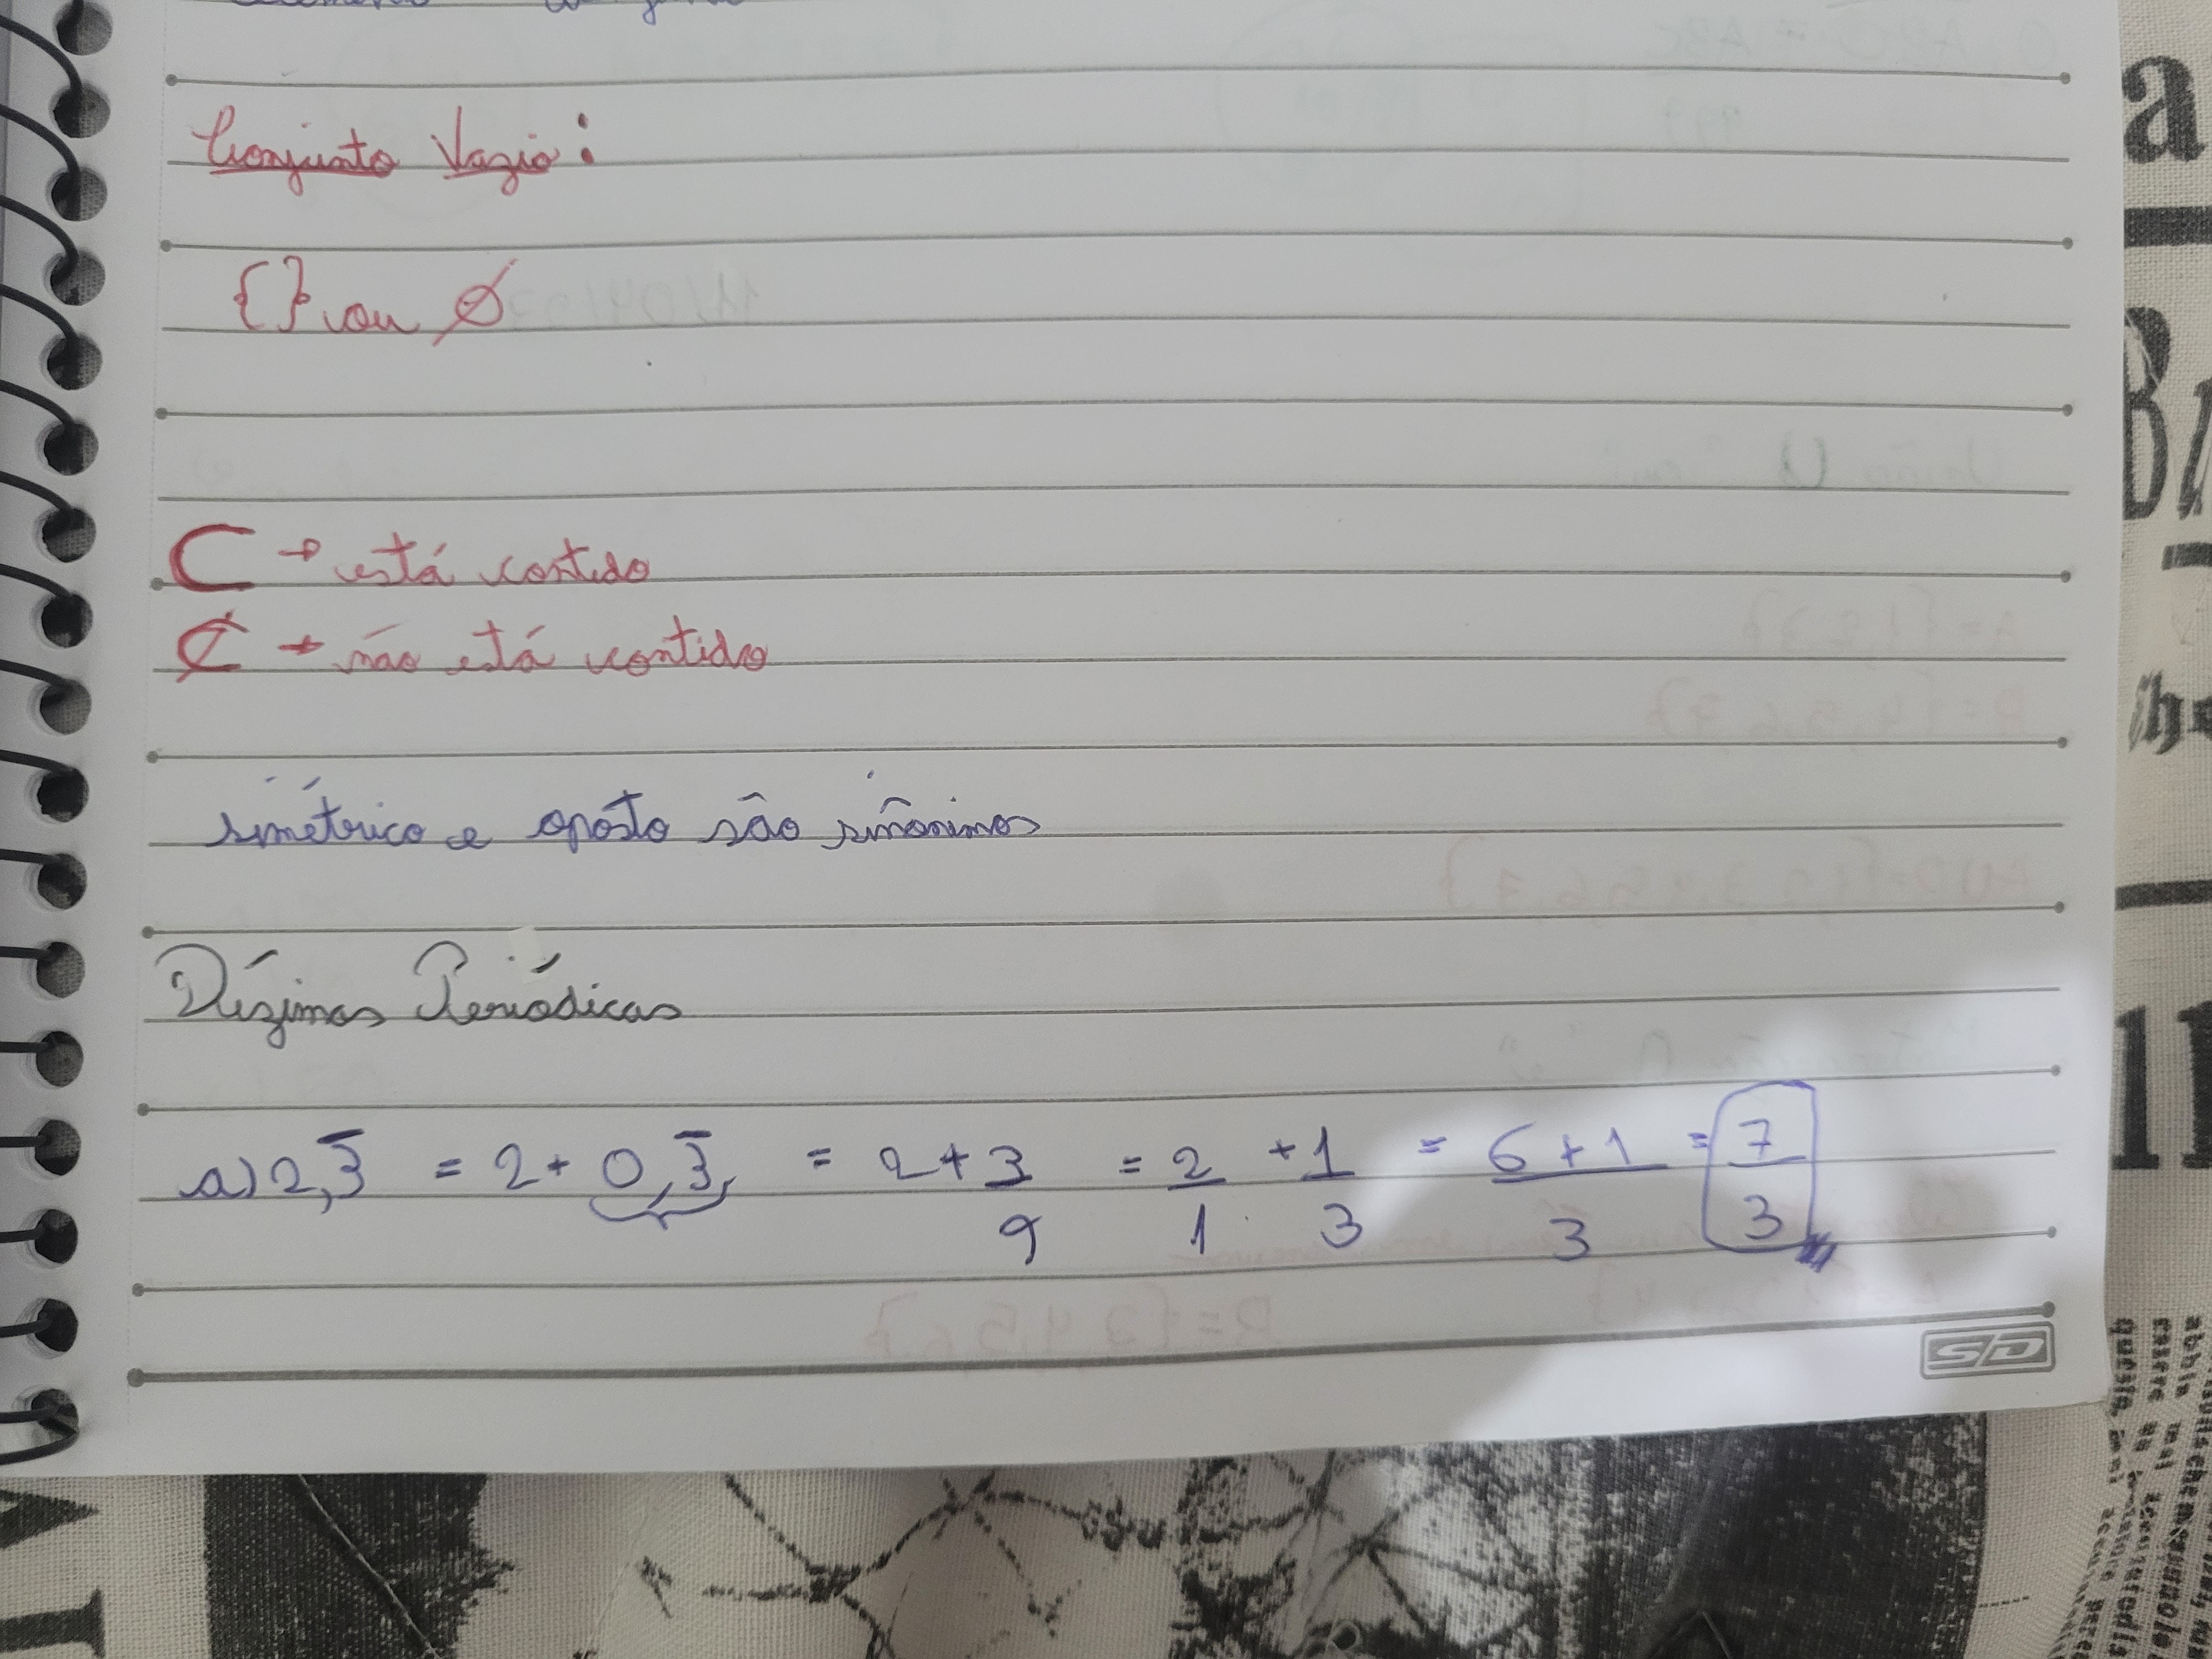 Conjunto Vazio:
{} ou ∅
⊂ → está contido
⊄ → não está contido
simétrico e oposto são sinônimos
Dízimas Periódicas
a) 2,3̅ = 2 + 0,3̅ = 2 + 3/9 = 2/1 + 1/3 = 6+1/3 = 7/3
SD